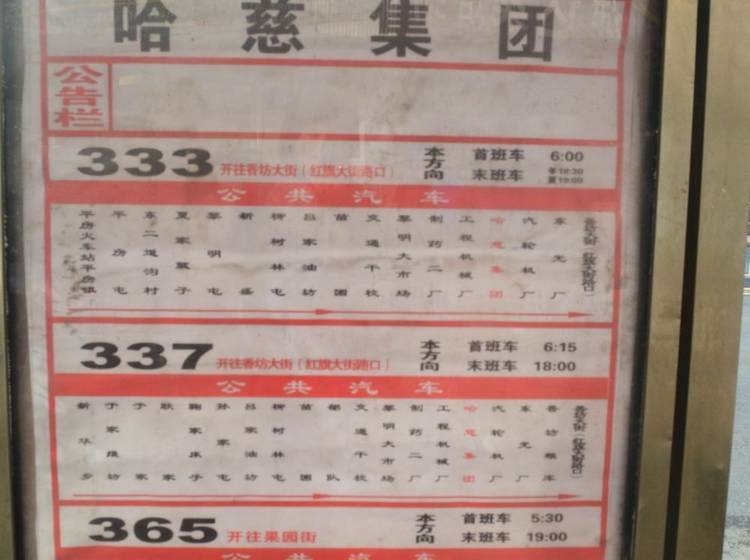 哈慈集团
公告栏
333 开往香坊大街(红旗大街路口) 本方向 首班车 6:00
末班车 冬18:30
夏19:00
公共汽车
平房火车站平房镇
平房屯
东二道沟村
夏家窝子
黎明屯
新盛
柳树林屯
吕家油坊
苗圃
交通干校
黎明大市场
制药二厂
工程机械厂
哈慈集团
汽轮机厂
东光厂
香坊大街(红旗大街路口)
337 开往香坊大街(红旗大街路口) 本方向 首班车 6:15
末班车 18:00
公共汽车
新华乡
于家维坊
于家
耿家
鞠家床子
孙家屯
吕家油坊
柳树林屯
苗圃
部队
交通干校
黎明大市场
制药二厂
工程机械厂
哈慈集团
汽轮机厂
东光厂
香坊粮库
香坊大街(红旗大街路口)
365 开往果园街 本方向 首班车 5:30
末班车 19:00
公共汽车